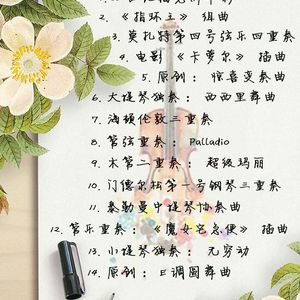 2. 《指环王》 组曲
3. 莫扎特第四号弦乐四重奏
4. 电影《卡萝尔》 插曲
5. 原创： 惊喜变奏曲
6. 大提琴独奏： 西西里舞曲
7. 海顿伦敦三重奏
8. 管弦重奏： Palladio
9. 木管二重奏： 超级玛丽
10. 门德尔松第一号钢琴三重奏
11. 泰勒曼中提琴协奏曲
12. 管乐重奏： 《魔女宅急便》 插曲
13. 小提琴独奏： 无穷动
14. 原创： E调圆舞曲